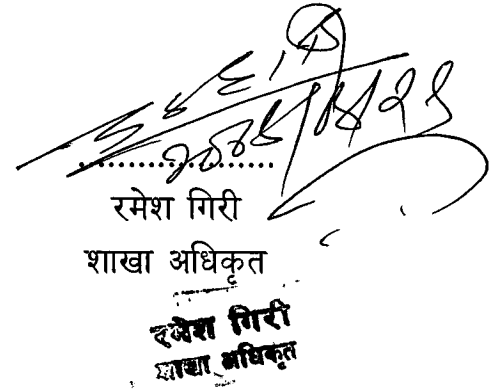 ....................
रमेश गिरी
शाखा अधिकृत
रमेश गिरी
शाखा अधिकृत